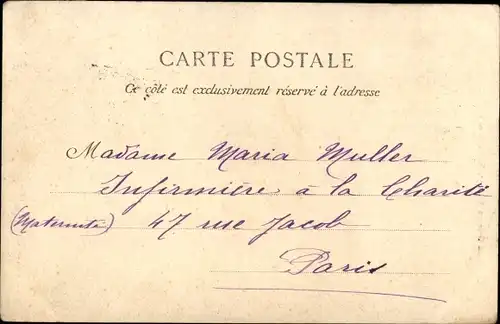 CARTE POSTALE
Ce côté est exclusivement réservé à l'adresse
Madame Maria Muller
Infirmière à la Charité
(Maternité) 47 rue Jacob
Paris